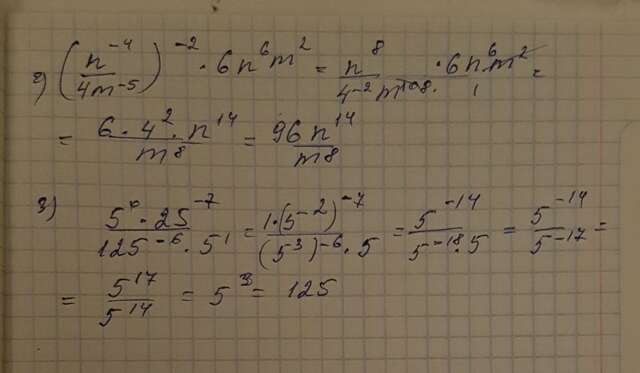 2) (n⁻⁴/4m⁻⁵)⁻² · 6n⁶m² = n⁸/4⁻²m¹⁰ 8 · 6n⁶m²/1 =
= 6·4²·n¹⁴/m⁸ = 96n¹⁴/m⁸
3) 5⁰·25⁻⁷/125⁻⁶·5¹ = 1·(5⁻²)⁻⁷/(5³)⁻⁶·5 = 5⁻¹⁴/5⁻¹⁸·5 = 5⁻¹⁴/5⁻¹⁷ =
= 5¹⁷/5¹⁴ = 5³ = 125